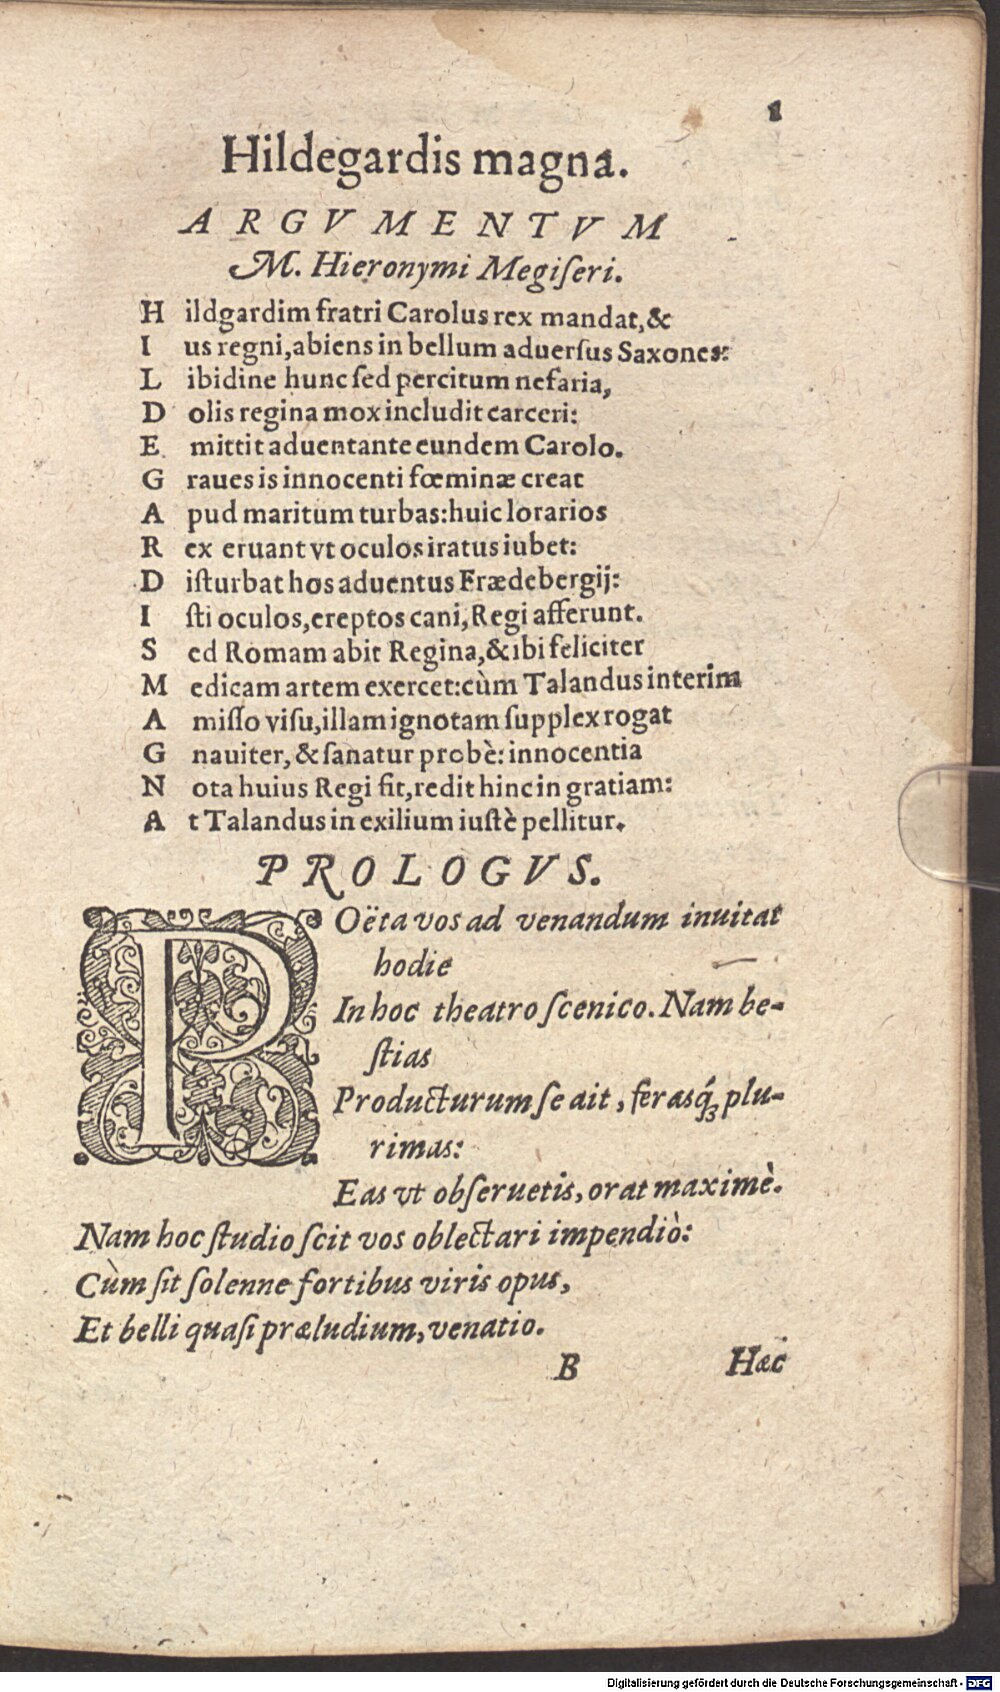 1
Hildegardis magna.
ARGVMENTVM
M. Hieronymi Megiſeri.
H ildgardim fratri Carolus rex mandat, &
I us regni, abiens in bellum aduerſus Saxones:
L ibidine hunc ſed percitum nefaria,
D olis regina mox includit carceri:
E mittit aduentante eundem Carolo.
G raues is innocenti fœminæ creat
A pud maritum turbas: huic lorarios
R ex eruant vt oculos iratus iubet:
D iſturbat hos aduentus Frædebergij:
I ſti oculos, ereptos cani, Regi afferunt.
S ed Romam abit Regina, & ibi feliciter
M edicam artem exercet: cùm Talandus interim
A miſſo viſu, illam ignotam ſupplex rogat
G nauiter, & ſanatur probè: innocentia
N ota huius Regi fit, redit hinc in gratiam:
A t Talandus in exilium iuſtè pellitur.
PROLOGVS.
POëta vos ad venandum inuitat
hodie
In hoc theatro ſcenico. Nam be-
ſtias
Producturum ſe ait, ferasq́ꝫ plu-
rimas:
Eas vt obſeruetis, orat maximè.
Nam hoc ſtudio ſcit vos oblectari impendiò:
Cùm ſit ſolenne fortibus viris opus,
Et belli quaſi præludium, venatio.
B Hæc
Digitalisierung gefördert durch die Deutsche Forschungsgemeinschaft - DFG